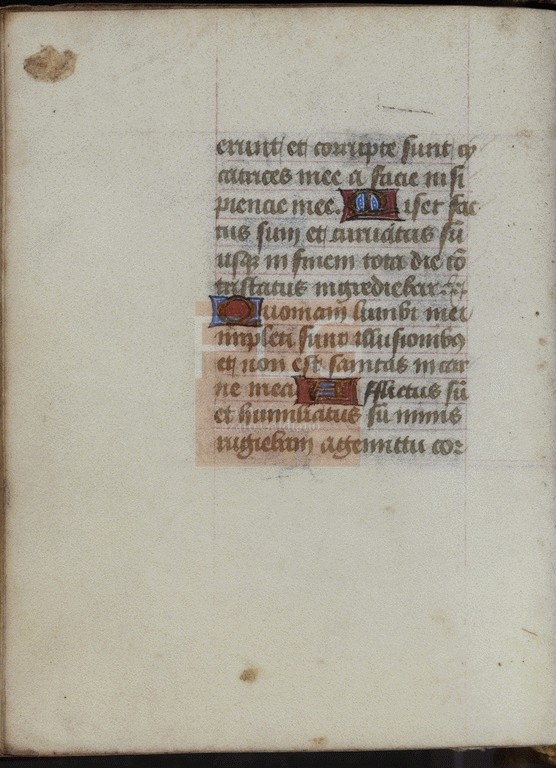 erunt et corrupte sunt cy
catrices mee a facie insi
piencie mee. Miser fac
tus sum et curuatus sū
usqꝫ in finem tota die cō
tristatus ingrediebar
Quoniam lumbi mei
impleti sunt illusionibꝰ
et non est sanitas in car
ne mea. Afflictus sū
et humiliatus sū nimis
rugiebam a gemittu cor